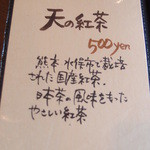 天の紅茶
500yen
熊本 水俣市で栽培
された国産紅茶。
日本茶の風味をもった
やさしい紅茶